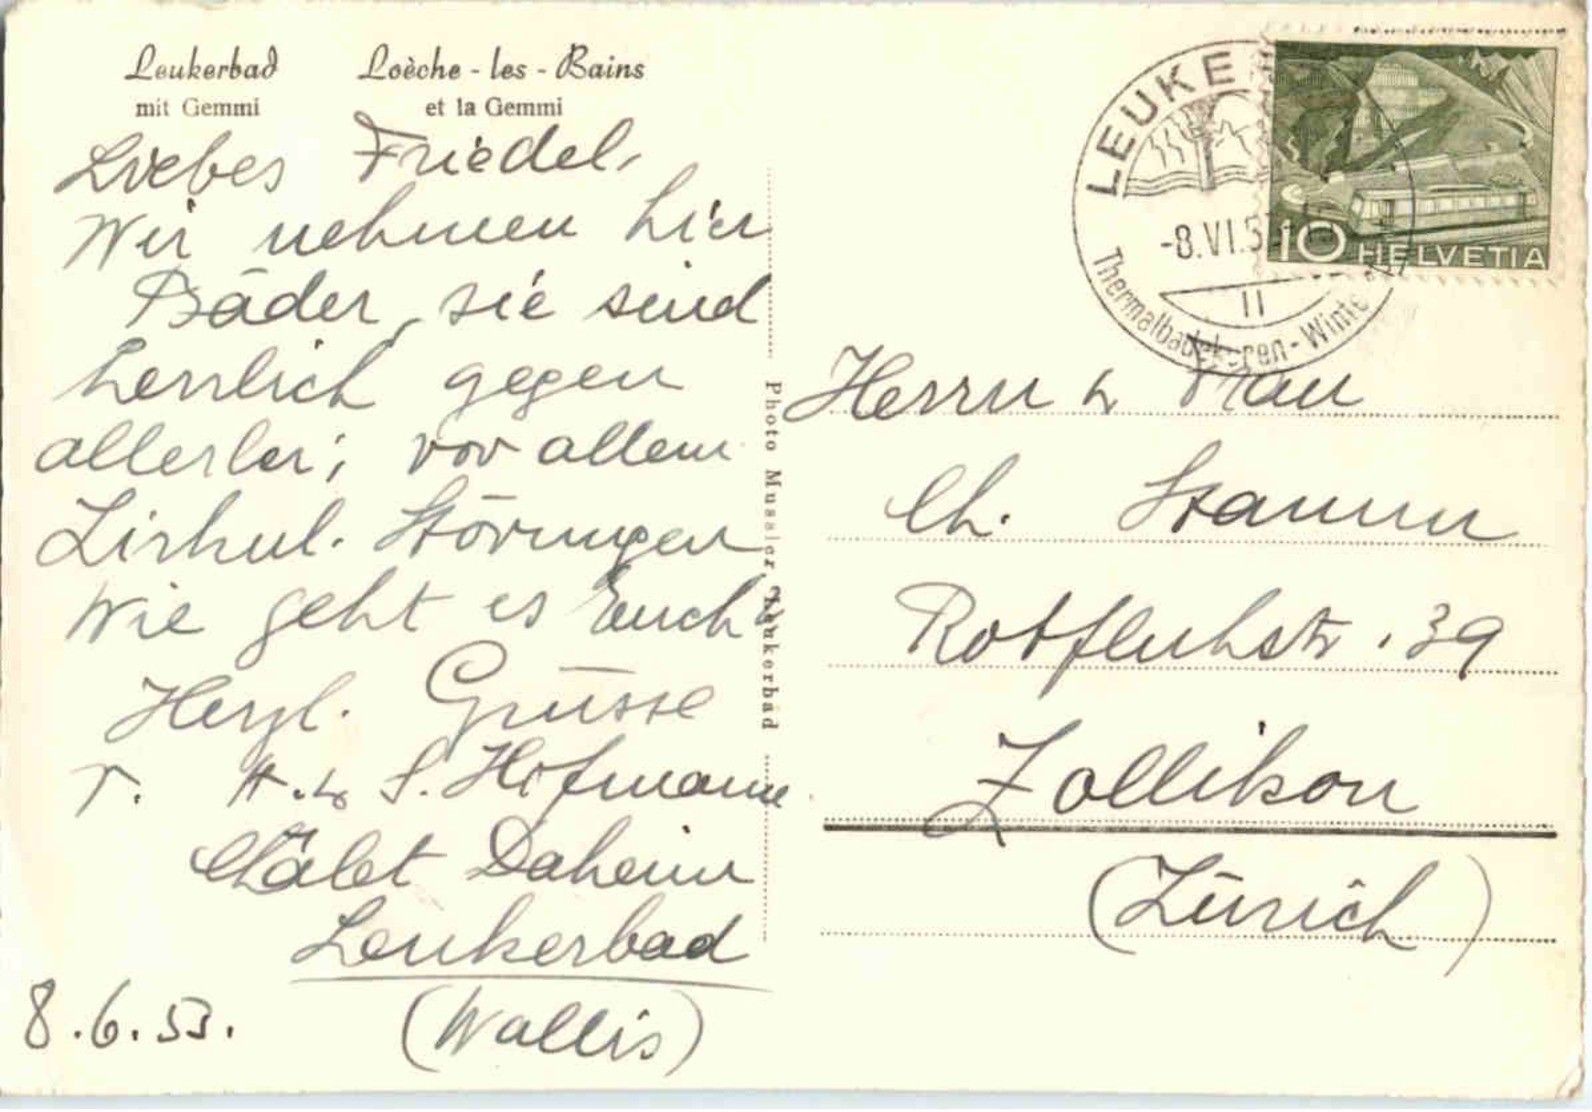 Leukerbad
mit Gemmi
Loèche-les-Bains
et la Gemmi
Liebes Friedel,
Wir nehmen hier
Bäder, sie sind
herrlich gegen
allerlei; vor allem
Zirkul. Störungen
Wie geht es Euch?
Herzl. Grüsse
v. H. u. S. Hofmann
Châlet Daheim
Leukerbad
(Wallis)
8.6.53.
Photo Leukerbad
LEUKE
-8.VI.5
11
Thermalbadekuren-Winte
10 HELVETIA
Herrn u Frau
Ch. Stamm
Rotfluhstr. 39
Zollikon
(Zürich)